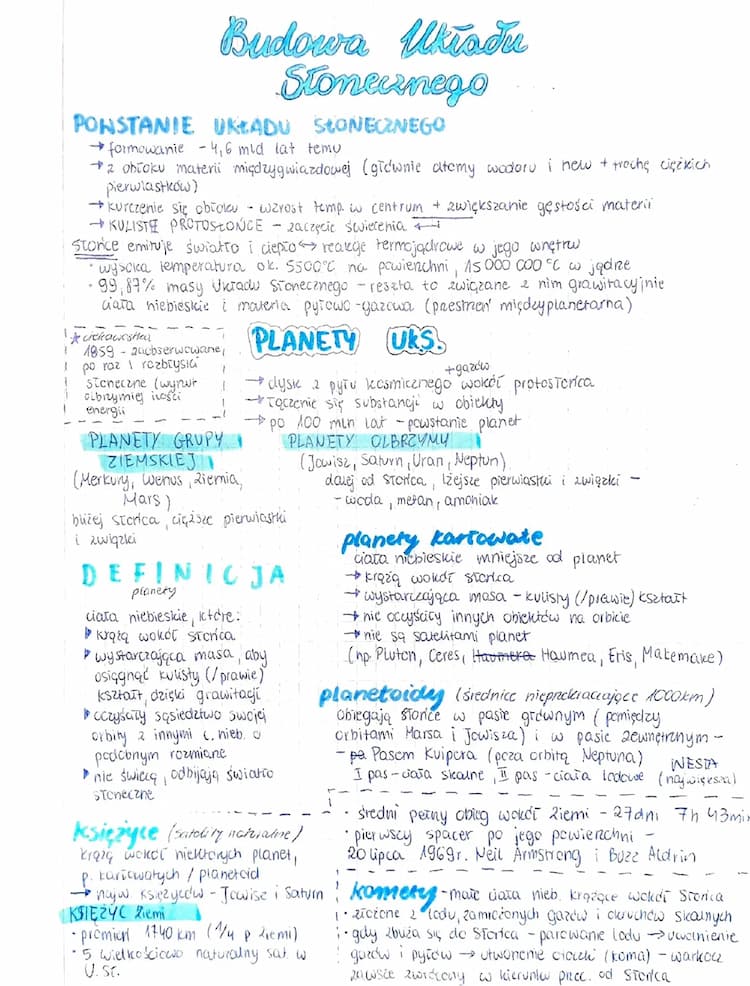 Budowa Układu
Słonecznego
POWSTANIE UKŁADU SŁONECZNEGO
→ formowanie - 4,6 mld lat temu
→ z obłoku materii międzygwiazdowej (głównie atomy wodoru i helu + trochę ciężkich
pierwiastków)
→ kurczenie się obłoku - wzrost temp. w centrum + zwiększanie gęstości materii
→ KULISTE PROTOSŁOŃCE - zaczęcie świecenia ←
słońce emituje światło i ciepło ↔ reakcje termojądrowe w jego wnętrzu
· wysoka temperatura ok. 5500°C na powierzchni, 15 000 000°C w jądrze
· 99,87% masy Układu Słonecznego - reszta to związane z nim grawitacyjnie
ciała niebieskie i materia pyłowo-gazowa (przestrzeń międzyplanetarna)
* ciekawostka
1859 - zaobserwowane
po raz 1 rozbłyski
słoneczne (wyrzut
olbrzymiej ilości
energii
PLANETY UKS.
+gazów
→ dysk z pyłu kosmicznego wokół protosłońca
→ łączenie się substancji w obiekty
→ po 100 mln lat - powstanie planet
PLANETY GRUPY
ZIEMSKIEJ
(Merkury, Wenus, Ziemia,
Mars)
bliżej słońca, cięższe pierwiastki
i związki
PLANETY OLBRZYMY
(Jowisz, Saturn, Uran, Neptun)
dalej od słońca, lżejsze pierwiastki i związki -
- woda, metan, amoniak
DEFINICJA
planety
ciała niebieskie, które:
krążą wokół słońca
wystarczająca masa, aby
osiągnąć kulisty (/prawie)
kształt, dzięki grawitacji
oczyściły sąsiedztwo swojej
orbity z innymi c. nieb. o
podobnym rozmiarze
nie świecą, odbijają światło
słoneczne
planety karłowate
ciała niebieskie mniejsze od planet
→ krążą wokół słońca
→ wystarczająca masa - kulisty (/prawie) kształt
→ nie oczyściły innych obiektów na orbicie
→ nie są satelitami planet
(np. Pluton, Ceres, Haumera Haumea, Eris, Makemake)
planetoidy (średnice nieprzekraczające 1000km)
obiegają słońce w pasie głównym (pomiędzy
orbitami Marsa i Jowisza) i w pasie zewnętrznym -
- pa Pasem Kuipera (poza orbitą Neptuna)
I pas - ciała skalne, II pas - ciała lodowe
WESTA
(największa)
księżyce (satelity naturalne)
krążą wokół niektórych planet,
p. karłowatych / planetoid
→ najw. księżyców - Jowisz i Saturn
KSIĘŻYC Ziemi
· promień 1740 km (1/4 p Ziemi)
· 5 wielkościowo naturalny sat. w
U. Sł.
· średni pełny obieg wokół Ziemi - 27dni 7h 43min
· pierwszy spacer po jego powierzchni -
20 lipca 1969r. Neil Armstrong i Buzz Aldrin
komety - małe ciała nieb. krążące wokół Słońca
· złożone z lodu, zamrożonych gazów i okruchów skalnych
· gdy zbliża się do Słońca - parowanie lodu → uwolnienie
gazów i pyłów → utworzenie otoczki (koma) - warkocz
zawsze zwrócony w kierunku prze. od Słońca